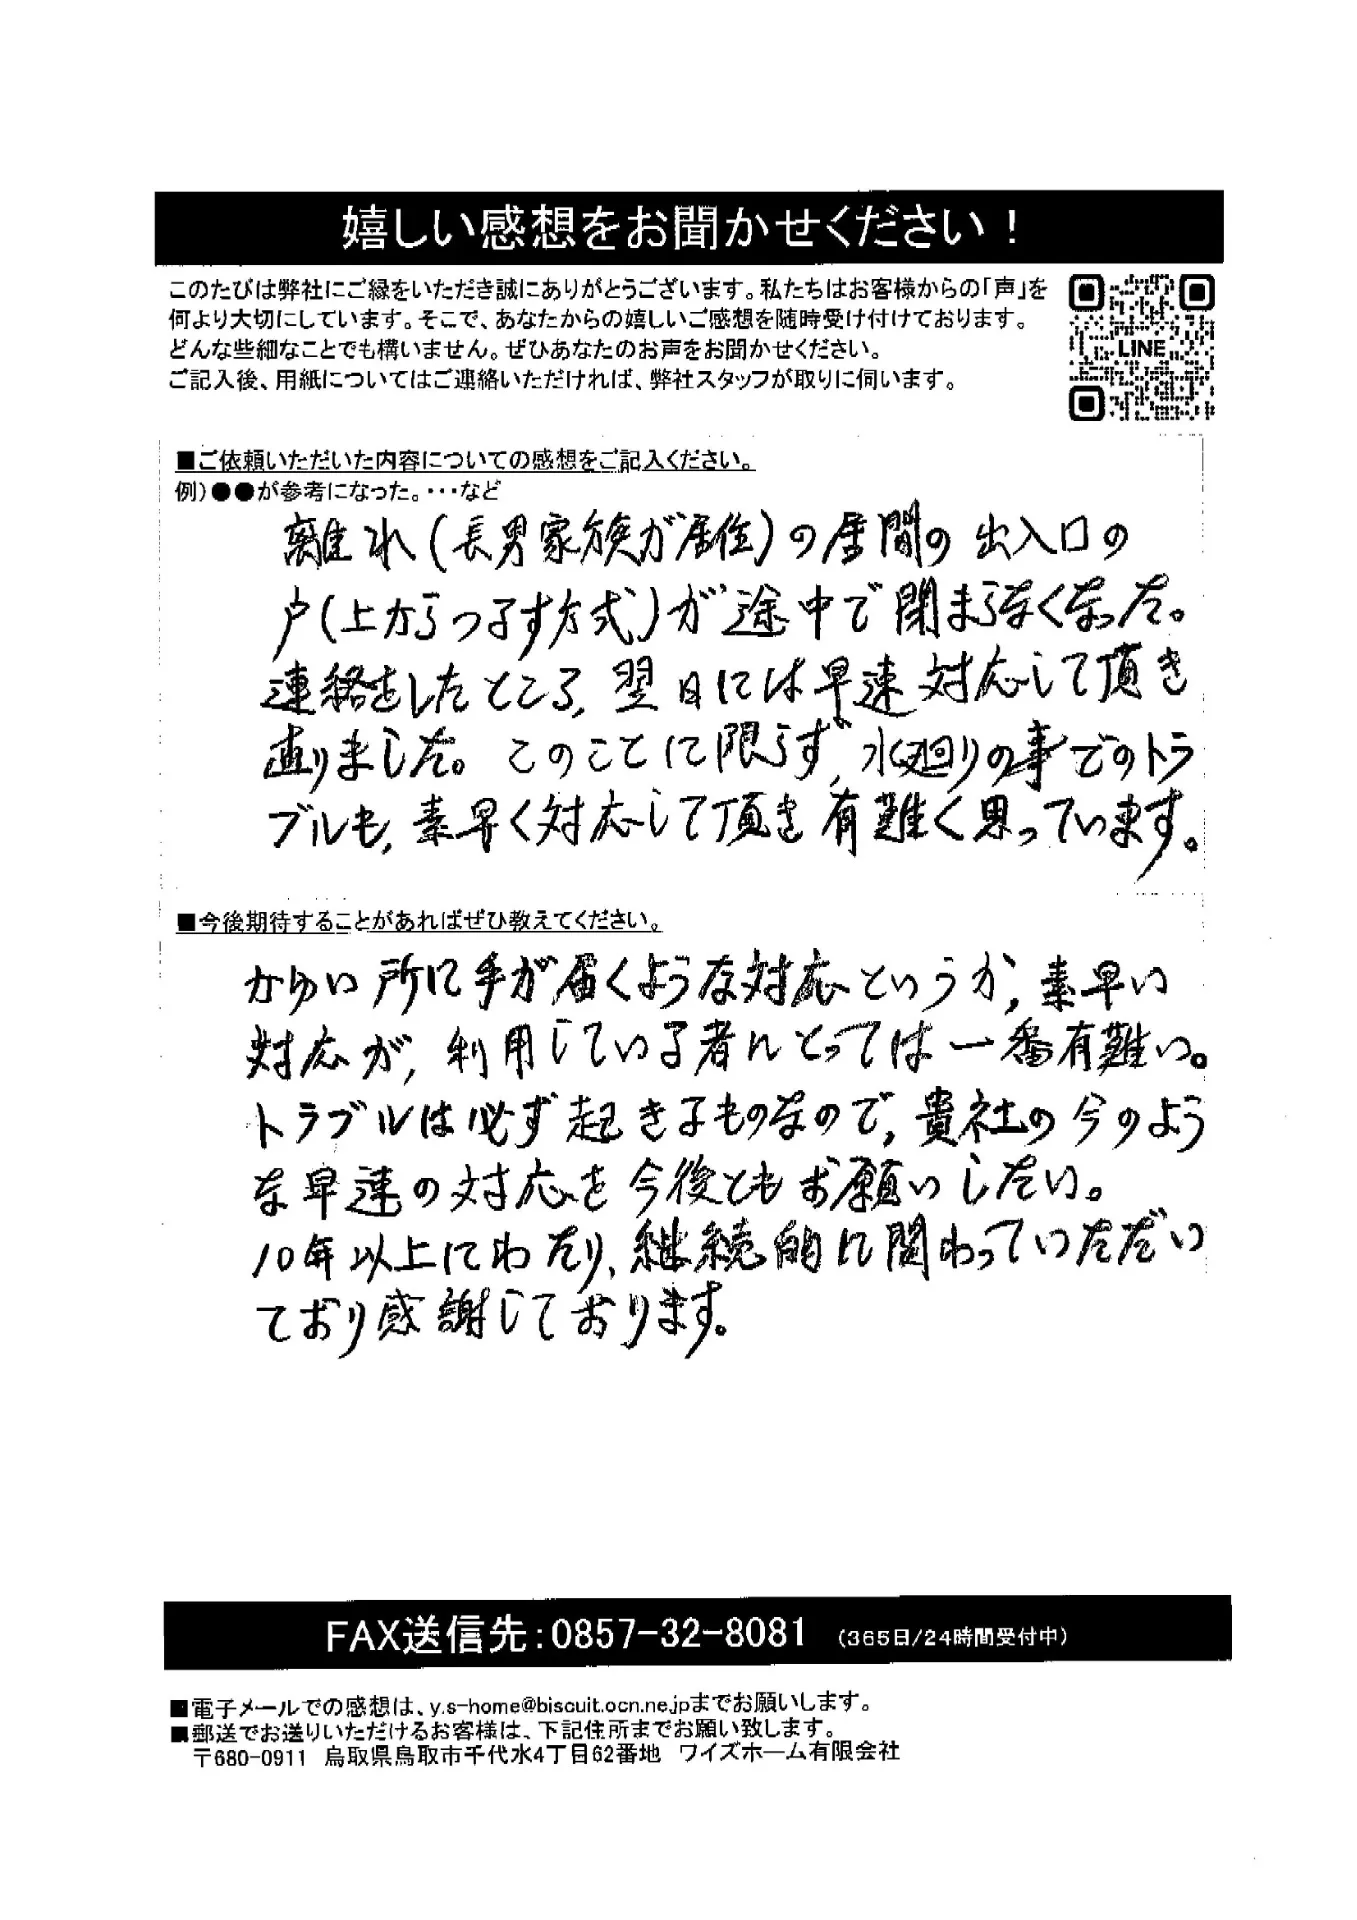 嬉しい感想をお聞かせください！
このたびは弊社にご縁をいただき誠にありがとうございます。私たちはお客様からの「声」を
何より大切にしています。そこで、あなたからの嬉しいご感想を随時受け付けております。
どんな些細なことでも構いません。ぜひあなたのお声をお聞かせください。
ご記入後、用紙についてはご連絡いただければ、弊社スタッフが取りに伺います。
LINE
■ご依頼いただいた内容についての感想をご記入ください。
例）●●が参考になった。・・・など
離れ(長男家族が居住)の居間の出入口の
戸(上からつるす方式)が途中で閉まらなくなった。
連絡をしたところ,翌日には早速対応して頂き
直りました。このことに限らず,水廻りの事でのトラ
ブルも,素早く対応して頂き有難く思っています。
■今後期待することがあればぜひ教えてください。
かゆい所に手が届くような対応というか,素早い
対応が,利用している者にとっては一番有難い。
トラブルは必ず起きるものなので,貴社の今のよう
な早速の対応を今後ともお願いしたい。
10年以上にわたり、継続的に関わっていただい
ており感謝しております。
FAX送信先：0857-32-8081 （365日/24時間受付中）
■電子メールでの感想は、y.s-home@biscuit.ocn.ne.jpまでお願いします。
■郵送でお送りいただけるお客様は、下記住所までお願い致します。
〒680-0911 鳥取県鳥取市千代水4丁目62番地 ワイズホーム有限会社